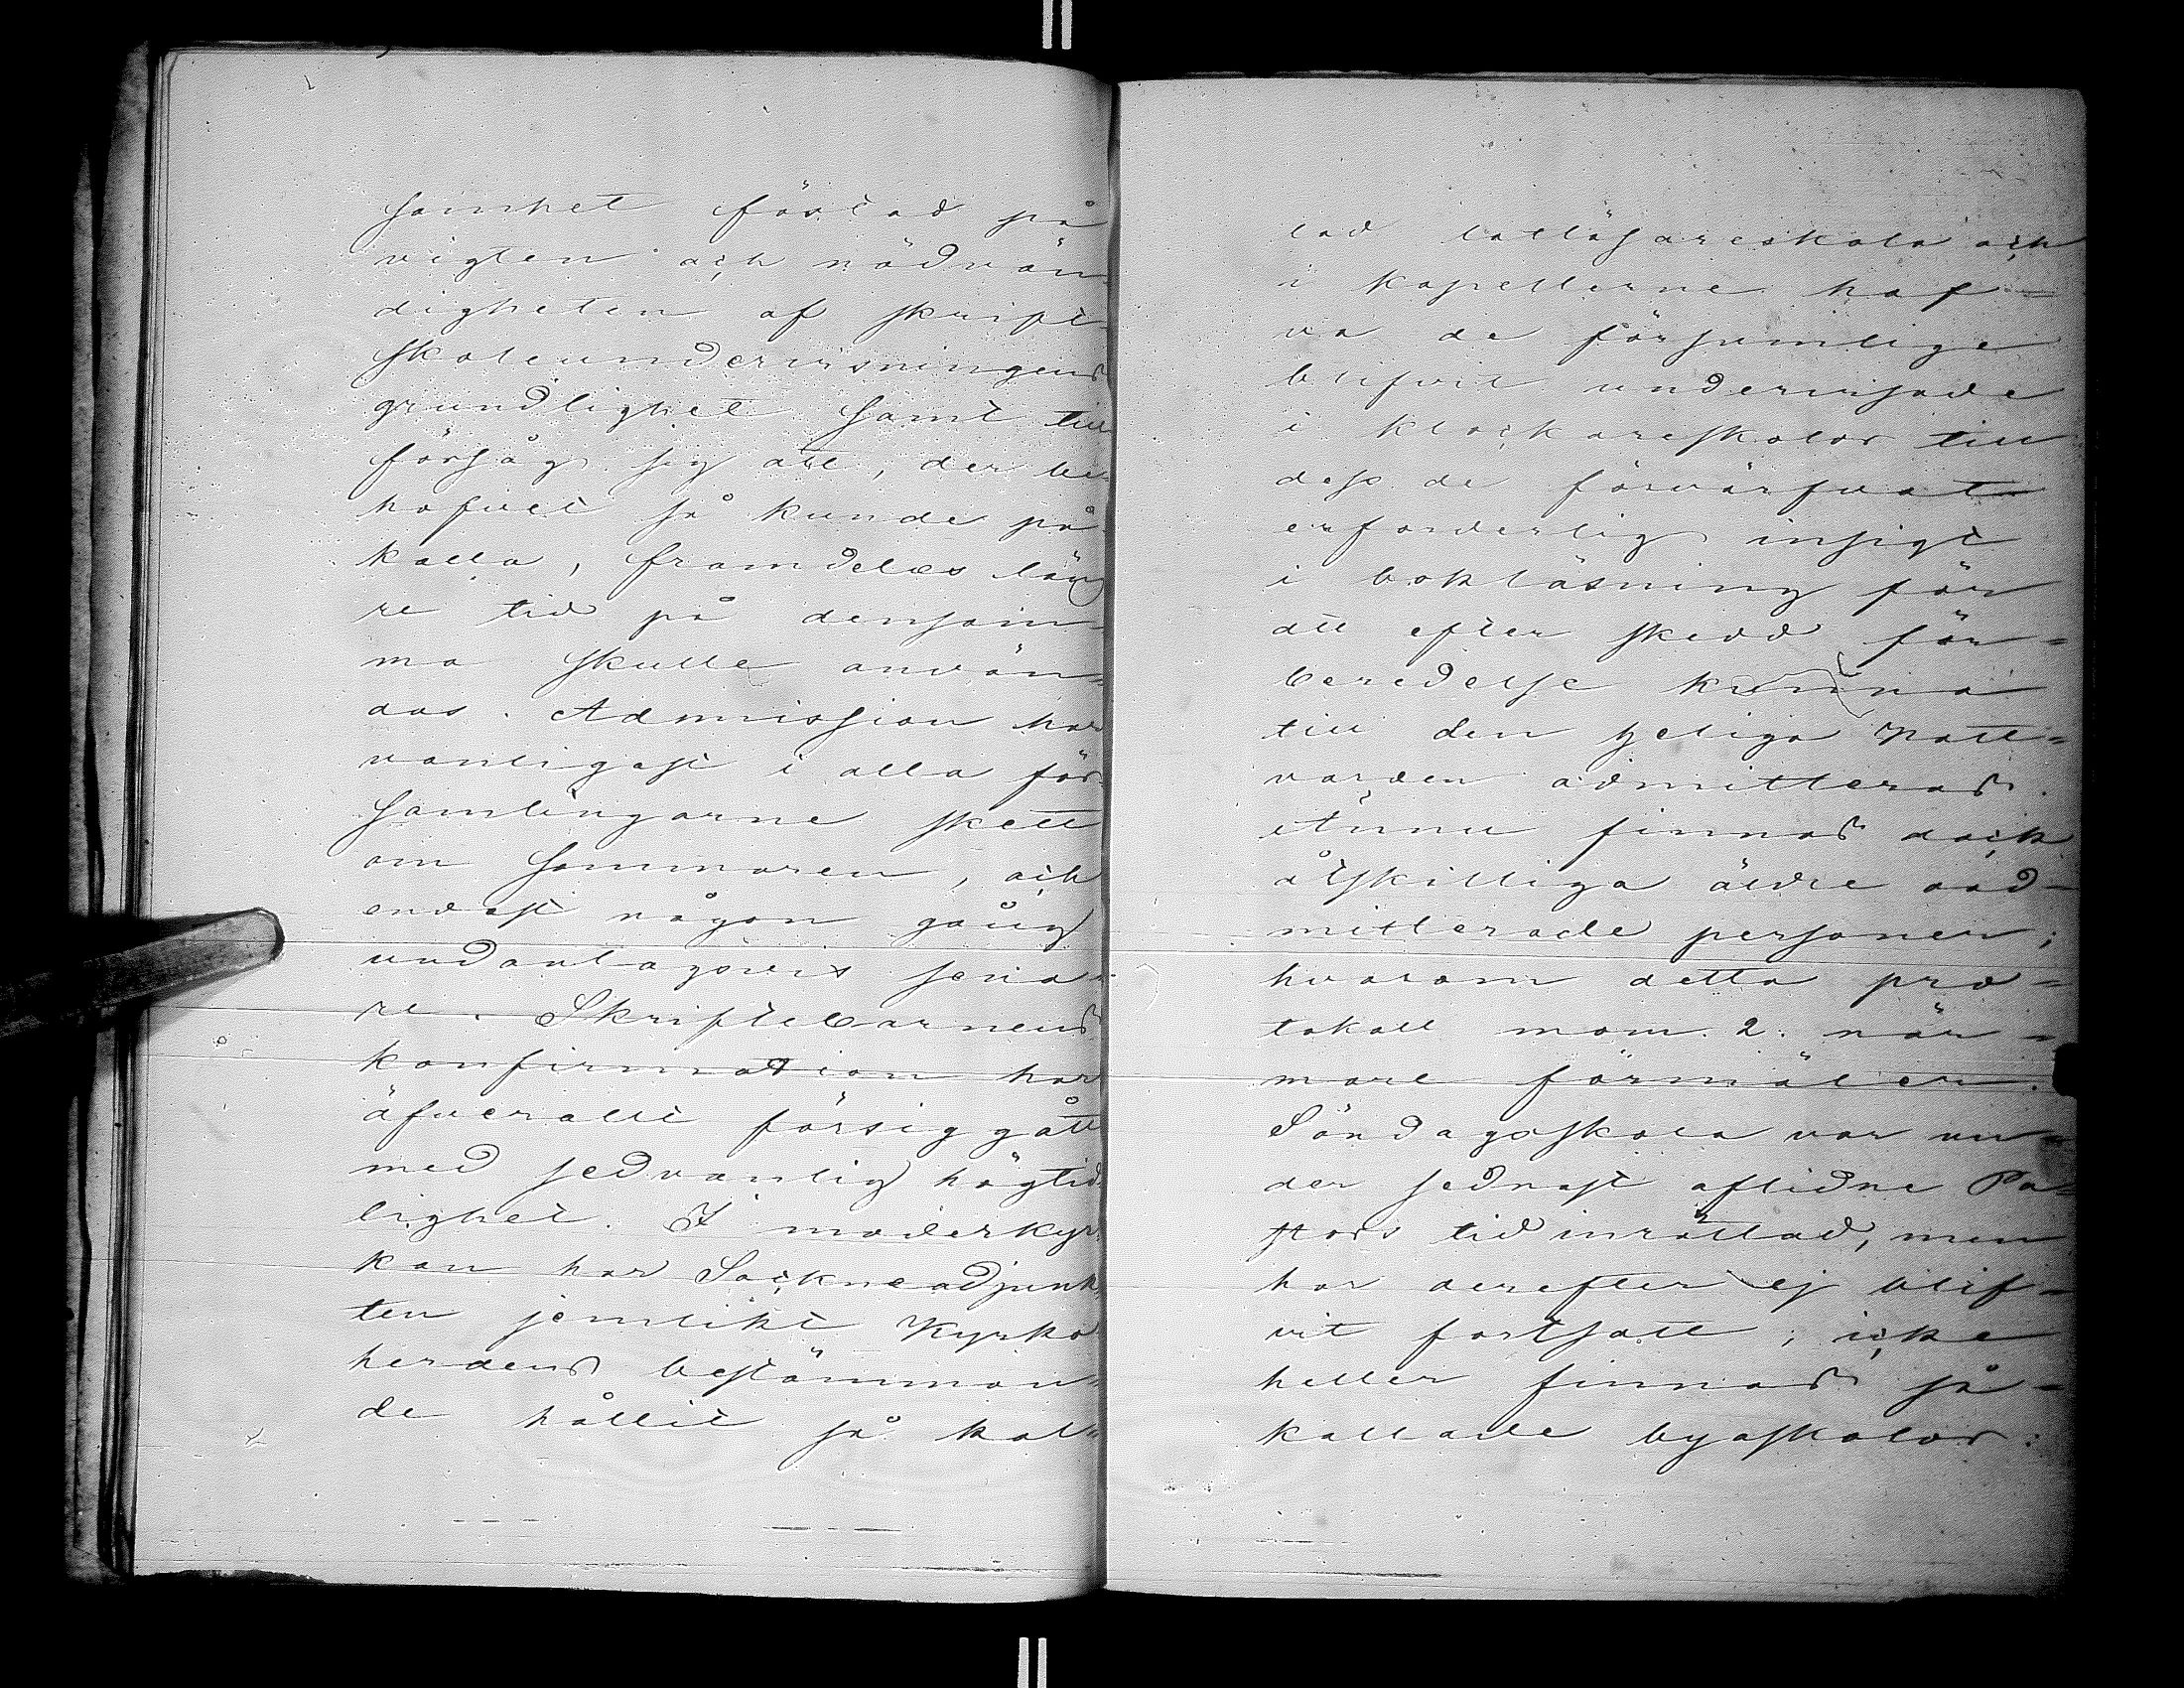 samhet fästad på
vigten och nödvän-
digheten af skript-
skoleundervisningens
grundlighet samt till
försåg sig att, der be-
hofvet så kunde på
kalla, framdeles läng
re tid på densam-
ma skulle använ-
das. Admission har
vanligast i alla för-
samlingarne skett
om sommaren, och
endast någon gång
undantagsvis sena-
re. Skriftebarnens
konfirmation har
äfverallt försiggått
med sedvanlig högtid
lighet. I moderkyr-
kan har Sockneadjunk
ten jemlikt Kyrko
herdens bestämman-
de hållit så kal-
lad lattläsareskola och
i kapellerne haf-
va de försumlige
blifvit undervisade
i klockareskolor till
dess de förvärfvat
erforderlig insigt
i bokläsning för
att efter skedd för-
beredelse kunna
till den heliga Natt-
varden admitteras.
Ännu finnas dock
åtskilliga äldre oad-
mitterade personer;
hvarom detta pro-
tokoll mom. 2. när-
mare förmäler.
Söndagsskola var un-
der sednast aflidne Pa-
stors tid inrättad, men
har derefter ej blif-
vit fortsatt; icke
heller finnas så-
kallade byaskolor: